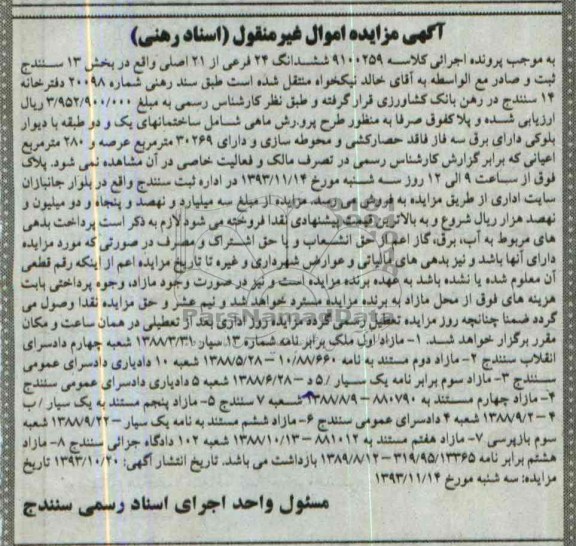 آگهی مزایده اموال غیرمنقول (اسناد رهنی)
به موجب پرونده اجرائی کلاسه ۹۱۰۰۲۵۹ ششدانگ ۲۴ فرعی از ۲۱ اصلی واقع در بخش ۱۳ سنندج
ثبت و صادر مع الواسطه به آقای خالد نیکخواه منتقل شده است طبق سند رهنی شماره ۲۰۰۹۸ دفترخانه
۱۴ سنندج در رهن بانک کشاورزی قرار گرفته و طبق نظر کارشناس رسمی به مبلغ ۳/۹۵۲/۹۰۰/۰۰۰ ریال
ارزیابی شده و پلاکفوق صرفا به منظور طرح پرورش ماهی شامل ساختمانهای یک و دو طبقه با دیوار
بلوکی دارای برق سه فاز فاقد حصارکشی و محوطه سازی و دارای ۳۰۲۶۹ مترمربع عرصه و ۲۸۰ مترمربع
اعیانی که برابر گزارش کارشناس رسمی در تصرف مالک و فعالیت خاصی در آن مشاهده نمی شود. پلاک
فوق از ساعت ۹ الی ۱۲ روز سه شنبه مورخ ۱۳۹۳/۱۱/۱۴ در اداره ثبت سنندج واقع در بلوار جانبازان
سایت اداری از طریق مزایده به فروش می رسد. مزایده از مبلغ سه میلیارد و نهصد و پنجاه و دو میلیون و
نهصد هزار ریال شروع و به بالاترین قیمت پیشنهادی نقدا فروخته می شود لازم به ذکر است پرداخت بدهی
های مربوط به آب، برق، گاز اعم از حق انشعاب و یا حق اشتراک و مصرف در صورتی که مورد مزایده
دارای آنها باشد و نیز بدهی های مالیاتی و عوارض شهرداری و غیره تا تاریخ مزایده اعم از اینکه رقم قطعی
آن معلوم شده یا نشده باشد به عهده برنده مزایده است و نیز در صورت وجود مازاد، وجوه پرداختی بابت
هزینه های فوق از محل مازاد به برنده مزایده مسترد خواهد شد و نیم عشر و حق مزایده نقدا وصول می
گردد ضمنا چنانچه روز مزایده تعطیل رسمی گردد مزایده روز اداری بعد از تعطیلی در همان ساعت و مکان
مقرر برگزار خواهد شد. ۱- مازاد اول ملک برابر نامه شماره ۱۳ سیار- ۱۳۸۸/۳/۳۱ شعبه چهارم دادسرای
انقلاب سنندج ۲- مازاد دوم مستند به نامه ۱۰/۸۸/۶۶۰ – ۱۳۸۸/۵/۲۸ شعبه ۱۰ دادیاری دادسرای عمومی
سنندج ۳- مازاد سوم برابر نامه یک سیار / ۵د – ۱۳۸۸/۶/۲۸ شعبه ۵ دادیاری دادسرای عمومی سنندج
۴- مازاد چهارم مستند به ۸۸۰۷۹۰ – ۱۳۸۸/۸/۹ شعبه ۷ سنندج ۵- مازاد پنجم مستند به یک سیار / ب
۴ – ۱۳۸۸/۹/۲ شعبه ۴ دادسرای عمومی سنندج ۶- مازاد ششم مستند به نامه یک سیار – ۱۳۸۸/۹/۲۲ شعبه
سوم بازپرسی ۷- مازاد هفتم مستند به ۸۸۱۰۱۲ – ۱۳۸۸/۱۰/۱۳ شعبه ۱۰۲ دادگاه جزائی سنندج ۸- مازاد
هشتم برابر نامه ۳۱۹/۹۵/۱۳۳۶۵ – ۱۳۸۹/۸/۱۲ بازداشت می باشد. تاریخ انتشار آگهی: ۱۳۹۳/۱۰/۲۰ تاریخ
مزایده: سه شنبه مورخ ۱۳۹۳/۱۱/۱۴
مسئول واحد اجرای اسناد رسمی سنندج
ParsNamadData